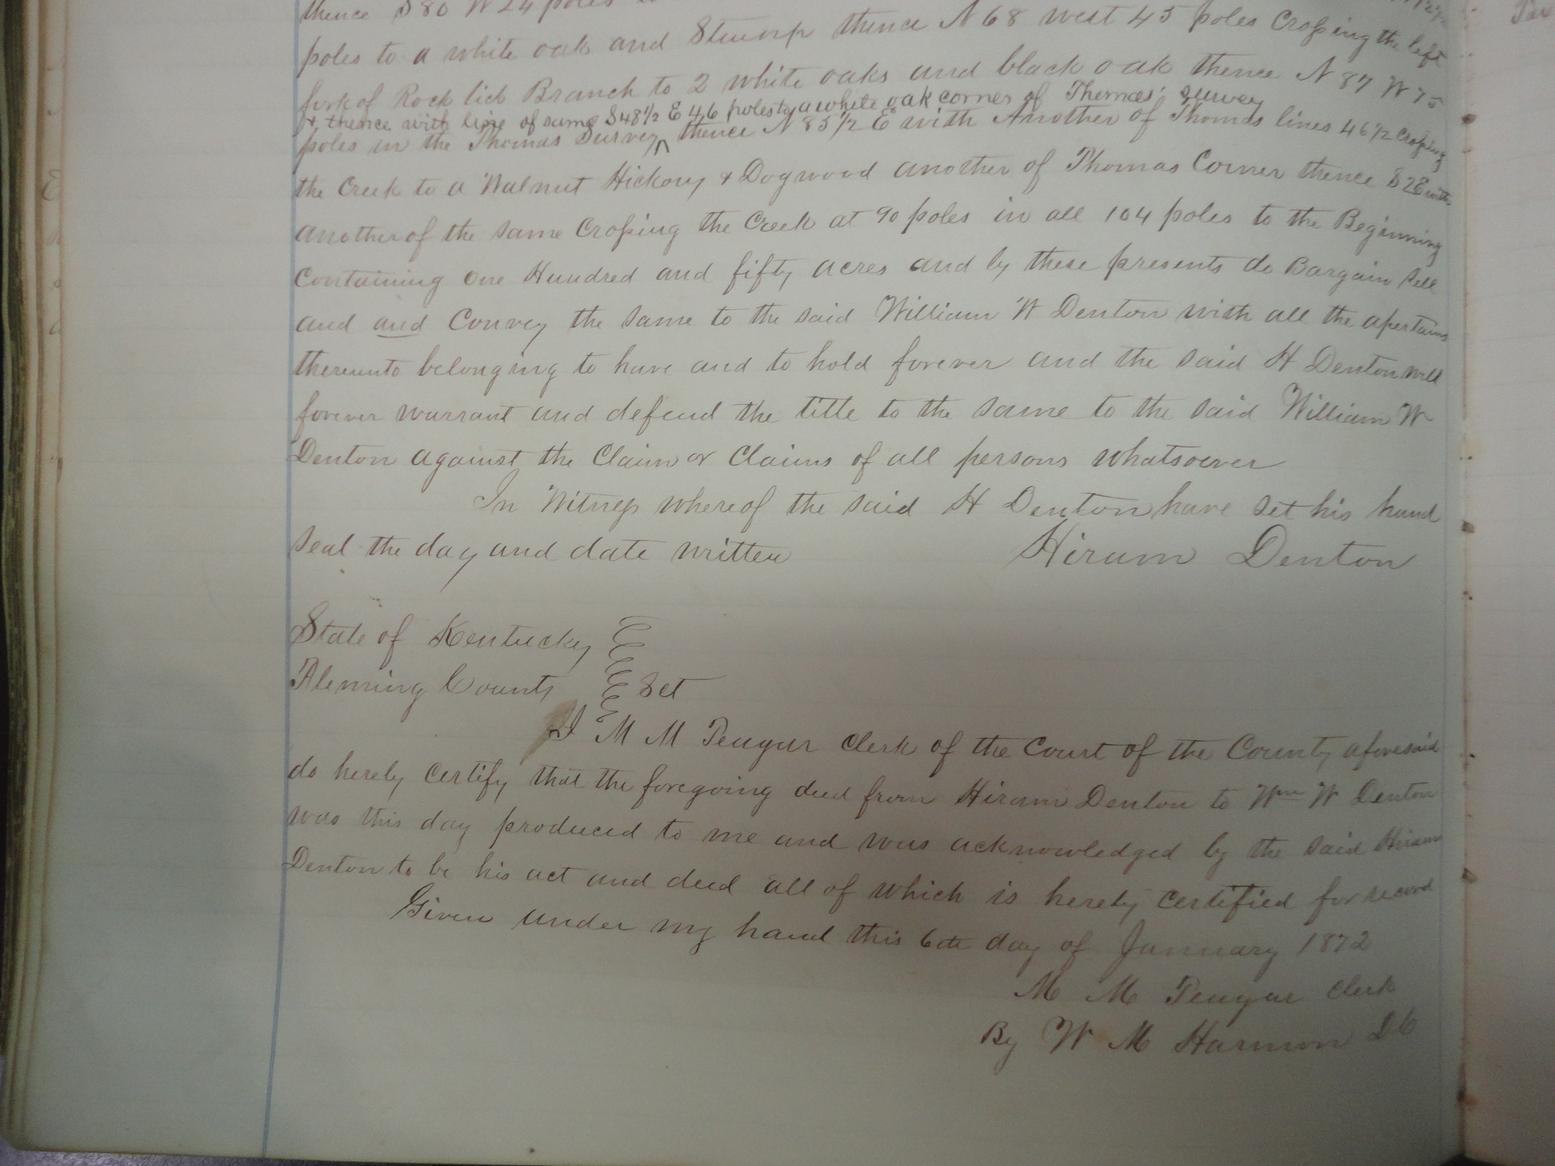 thence S 80 W 24 poles
poles to a white oak and Stump thence N 68 west 45 poles Crossing the left
fork of Rock lick Branch to 2 white oaks and black oak thence N 87 W 75
& thence with line of same S 48 1/2 E 46 poles to a white oak corner of Thomas' survey
poles in the Thomas Survey ^ thence N 85 1/2 E with Another of Thomas lines 46 1/2 Crossing
the Creek to a Walnut Hickory & Dogwood another of Thomas Corner thence S 28 with
another of the same Crossing the Creek at 90 poles in all 104 poles to the Beginning
Containing One Hundred and fifty acres and by these presents do Bargain Sell
and and Convey the same to the said William W Denton with all the apertains
thereunto belonging to have and to hold forever and the said H Denton will
forever warrant and defend the title to the same to the said William W
Denton against the Claim or Claims of all persons whatsoever
In Witness whereof the said H Denton have set his hand
seal the day and date written Hiram Denton
State of Kentucky
Fleming County Sct
I M M Teagar Clerk of the Court of the County aforesaid
do herely Certify that the foregoing deed from Hiram Denton to Wm W Denton
was this day produced to me and was acknowledged by the said Hiram
Denton to be his act and deed all of which is herely Certified for record
Given under my hand this 6th day of January 1872
M M Teagar Clerk
By W M Harmon D C